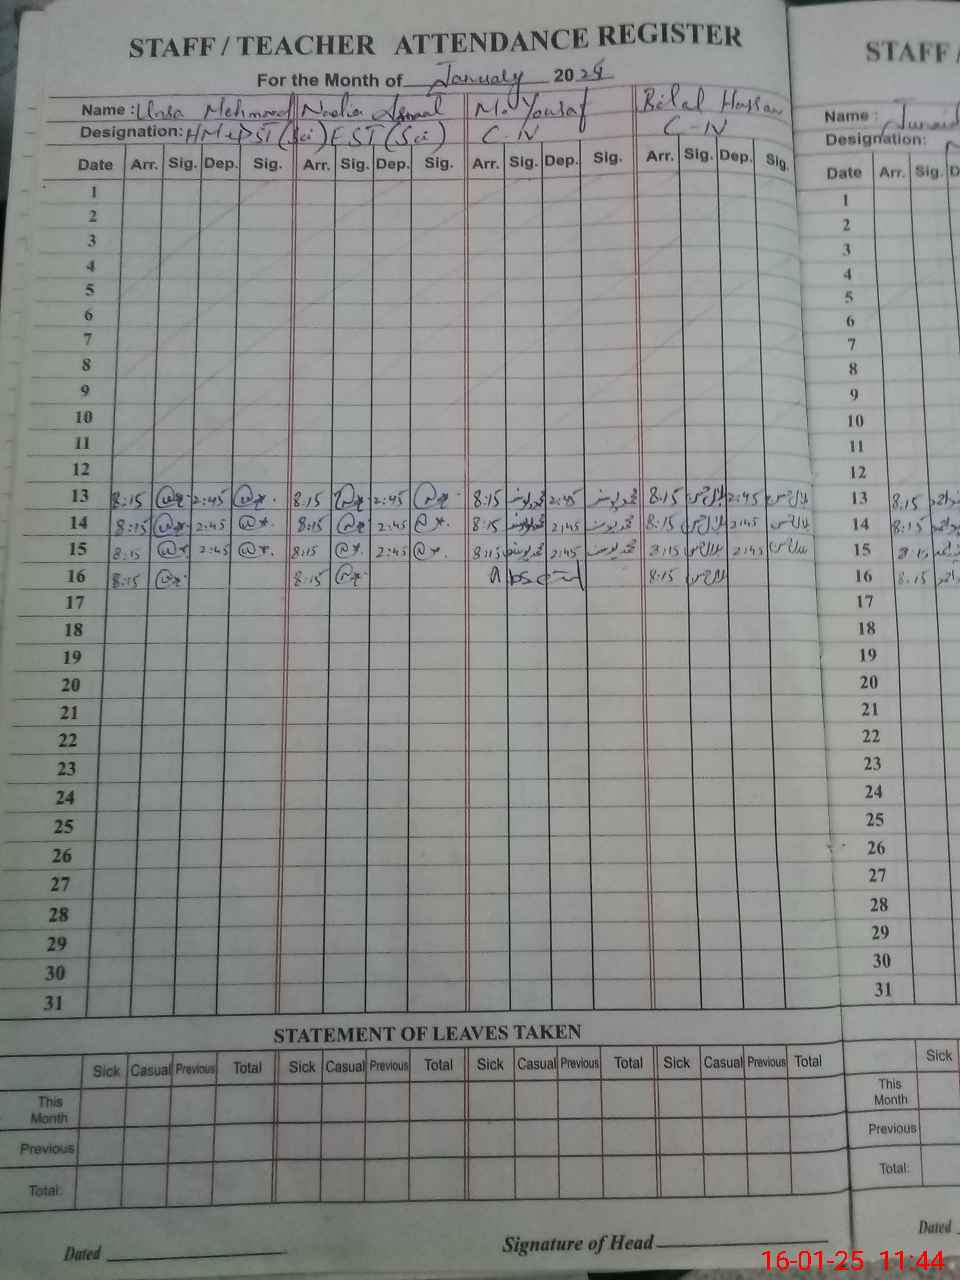 STAFF / TEACHER ATTENDANCE REGISTER
For the Month of January 20
Name : Unsa Mehmood Nadia M. Yousaf Bilal Hassan
Designation: (Sci) EST (Sci) C-IV C-IV
Date Arr. Sig. Dep. Sig. Arr. Sig. Dep. Sig. Arr. Sig. Dep. Sig. Arr. Sig. Dep. Sig.
1
2
3
4
5
6
7
8
9
10
11
12
13 8:15 2:45 8:15 2:45 8:15 محمد یوسف 2:45 محمد یوسف 8:15 بلال حسن 2:45 بلال حسن
14 8:15 2:45 8:15 2:45 8:15 محمد یوسف 2:45 محمد یوسف 8:15 بلال حسن 2:45 بلال حسن
15 8:15 2:45 8:15 2:45 8:15 محمد یوسف 2:45 محمد یوسف 8:15 بلال حسن 2:45 بلال حسن
16 8:15 8:15 Absent 8:15 بلال حسن
17
18
19
20
21
22
23
24
25
26
27
28
29
30
31
STATEMENT OF LEAVES TAKEN
Sick Casual Previous Total Sick Casual Previous Total Sick Casual Previous Total Sick Casual Previous Total
This Month
Previous
Total:
Dated Signature of Head
STAFF /
Name : Junaid
Designation:
Date Arr. Sig. D
1
2
3
4
5
6
7
8
9
10
11
12
13 8:15
14 8:15
15 8:15
16 8:15
17
18
19
20
21
22
23
24
25
26
27
28
29
30
31
Sick
This Month
Previous
Total:
Dated
16-01-25 11:44